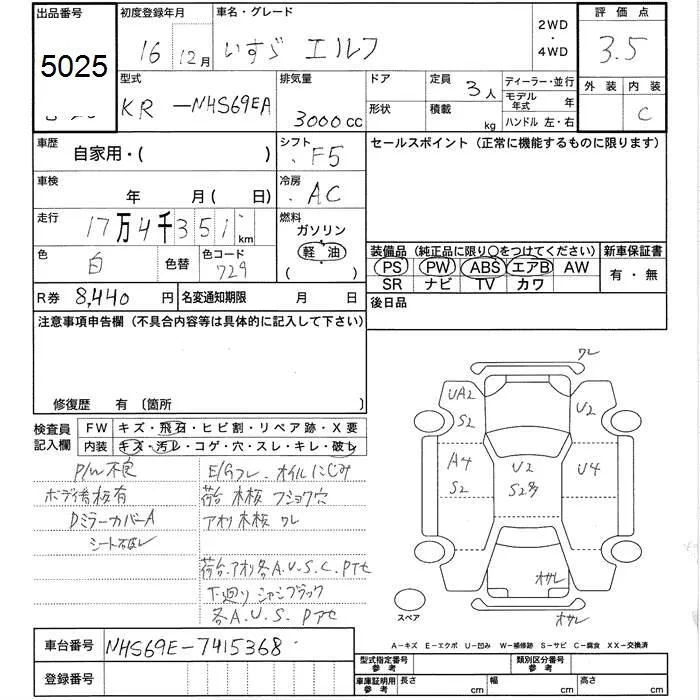 出品番号 初度登録年月 車名・グレード 2WD ・ 4WD 評価点
5025 16 12月 いすゞ エルフ 3.5
型式 排気量 ドア 定員 3人 ディーラー・並行 外装 内装
KR-NHS69EA 3000cc 形状 積載 kg モデル年式 年 C
ハンドル 左・右
車歴 自家用・( ) シフト F5 セールスポイント (正常に機能するものに限ります)
車検 年 月( 日) 冷房 AC
走行 17万4千351km 燃料 ガソリン 軽油 ( )
色 白 色替 色コード 729
装備品 (純正品に限り○をつけてください) 新車保証書
PS PW ABS エアB AW 有・無
SR ナビ TV カワ
R券 8,440円 名変通知期限 月 日 後日品
注意事項申告欄 (不具合内容等は具体的に記入して下さい)
修復歴 有 〔箇所 〕
検査員記入欄 FW キズ・飛石・ヒビ割・リペア跡・X要
内装 キズ・汚レ・コゲ・穴・スレ・キレ・破レ
P/W不良 E/Gフレ、オイルにじみ
ボデイ看板有 荷台 木板 フショク穴
DミラーカバーA アオリ木板 ワレ
シート破レ
荷台.アオリ各A.U.S.C.Pアセ
下廻りシャシブラック
各A.U.S.Pアセ
ワレ
UA2 U2
S2
A4 U2 U4
S2 S2多
オサレ
オサレ
スペア
A-キズ E-エクボ U-凹み W-補修跡 S-サビ C-腐食 XX-交換済
車台番号 NHS69E-7415368
登録番号
型式指定番号 参考 類別区分番号 参考
車庫証明用 参考 長さ cm 幅 cm 高さ cm